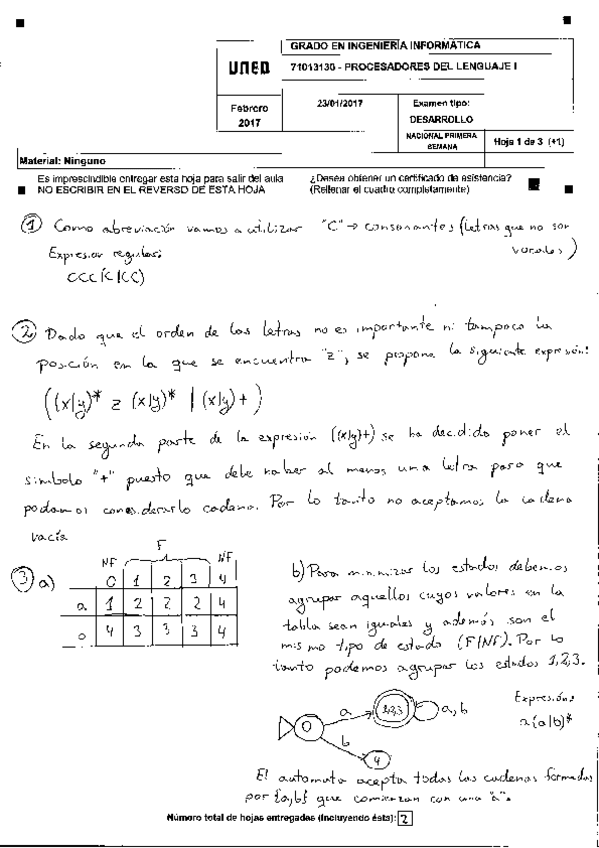 UNED
GRADO EN INGENIERÍA INFORMÁTICA
71013130 - PROCESADORES DEL LENGUAJE I
Febrero
2017
23/01/2017
Examen tipo:
DESARROLLO
NACIONAL PRIMERA
SEMANA
Hoja 1 de 3 (+1)
Material: Ninguno
Es imprescindible entregar esta hoja para salir del aula
NO ESCRIBIR EN EL REVERSO DE ESTA HOJA
¿Desea obtener un certificado de asistencia?
(Rellenar el cuadro completamente)
① Como abreviación vamos a utilizar "C" → consonantes (letras que no son
vocales)
Expresión regular:
CCC(C|CC)
② Dado que el orden de las letras no es importante ni tampoco la
posición en la que se encuentra "z", se propone la siguiente expresión:
((x|y)* z (x|y)* | (x|y)+)
En la segunda parte de la expresión ((x|y)+) se ha decidido poner el
símbolo "+" puesto que debe haber al menos una letra para que
podamos considerarlo cadena. Por lo tanto no aceptamos la cadena
vacía
③ a)
F
NF NF
0 1 2 3 4
a 1 2 2 2 4
b 4 3 3 3 4
b) Para minimizar los estados debemos
agrupar aquellos cuyos valores en la
tabla sean iguales y además son el
mismo tipo de estado (F/NF). Por lo
tanto podemos agrupar los estados 1,2,3.
0 a 1,2,3 a,b
b 4
Expresión:
a(a|b)*
El automata acepta todas las cadenas formadas
por {a,b} que comienzan con una "a".
Número total de hojas entregadas (incluyendo ésta): 2